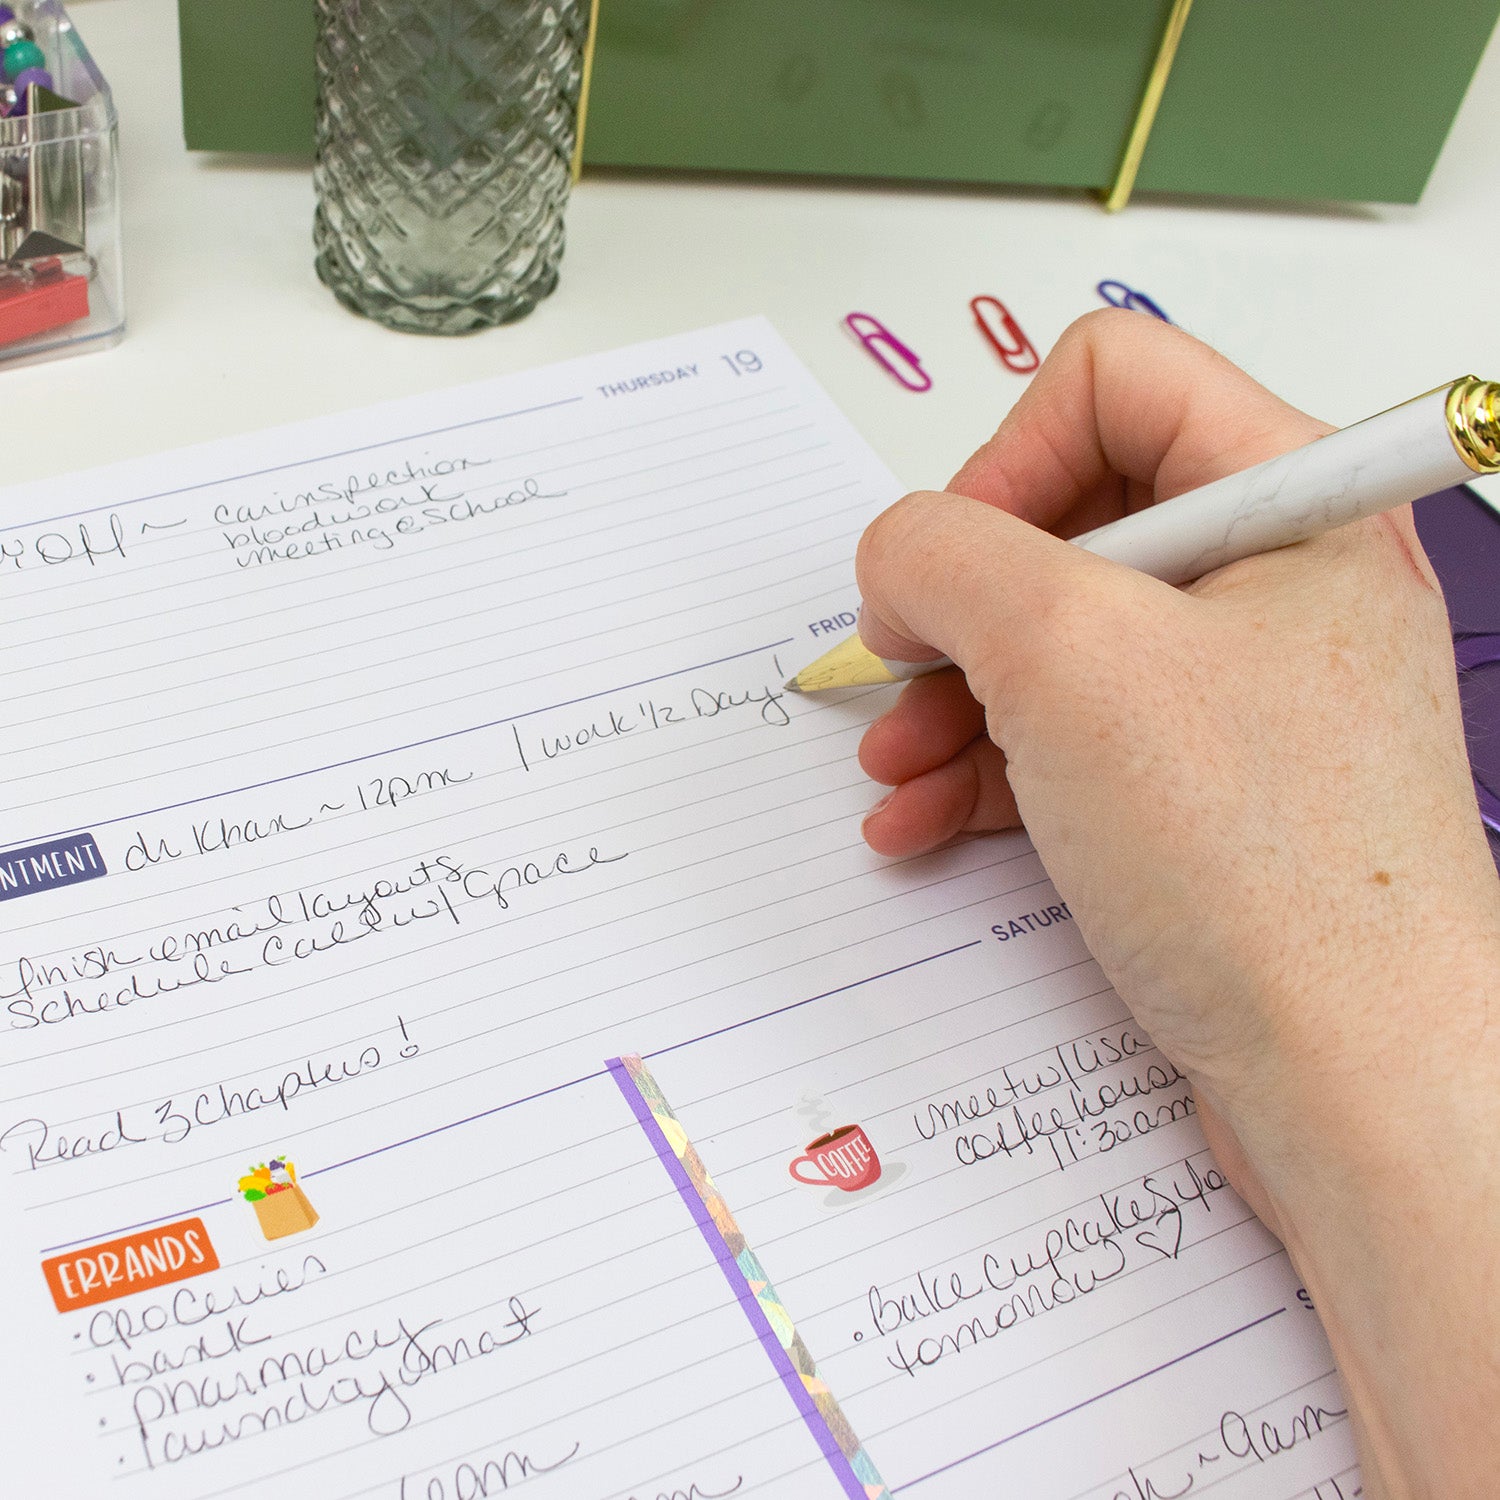 THURSDAY 19
Off ~ car inspection
bloodwork
meeting @ school
FRIDA
NTMENT dr Khan ~ 12pm / work 1/2 Day!
finish email layouts
schedule call w/ Grace
Read 3 Chapters!
SATUR
ERRANDS
· groceries
· bank
· pharmacy
· laundry mat
COFFEE
meet w/ Lisa
coffee house
11:30am
· Bake cupcakes
tomorrow ♡
S
~ 9am